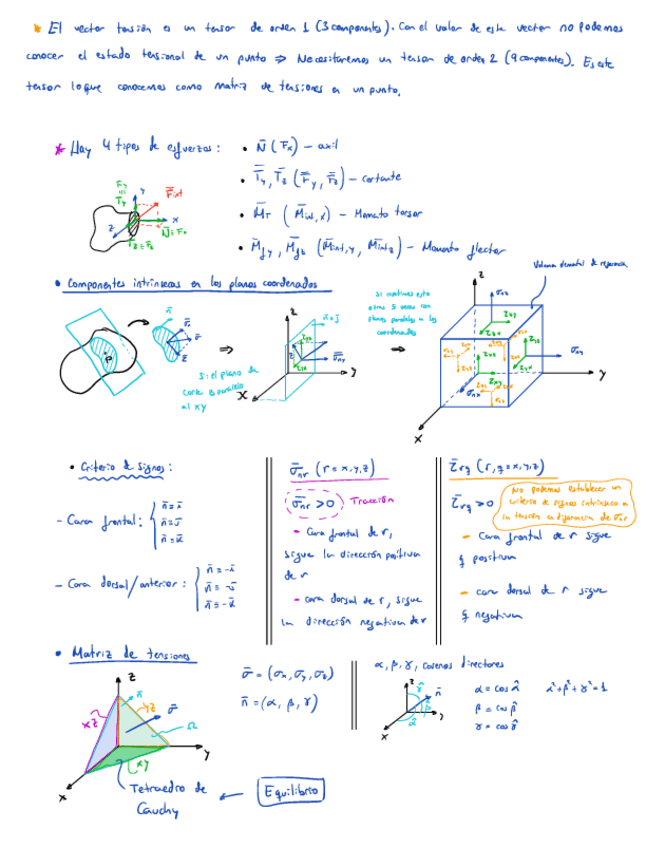 * El vector tensión es un tensor de orden 1 (3 componentes). Con el valor de este vector no podemos
conocer el estado tensional de un punto ⇒ Necesitaremos un tensor de orden 2 (9 componentes). Es este
tensor lo que conocemos como matriz de tensiones en un punto.
* Hay 4 tipos de esfuerzos:
• N̄ (F̄x) – axil
• T̄y, T̄z (F̄y, F̄z) – cortante
• M̄T (M̄int,x) – Momento torsor
• M̄fy, M̄fz (M̄int,y, M̄intz) – Momento flector
• Componentes intrínsecas en los planos coordenados
Si el plano de
corte es paralelo
al xy
⇒
Si continuas esto
otras 5 veces con
planos paralelos a los
coordenados
⇒
Volumen elemental de referencia
• Criterio de signos:
- Cara frontal:
n̄ = ī
n̄ = j̄
n̄ = k̄
- Cara dorsal/anterior:
n̄ = -ī
n̄ = -j̄
n̄ = -k̄
σ̄nr (r = x, y, z)
σ̄nr > 0 Tracción
- Cara frontal de r,
sigue la dirección positiva
de r
- cara dorsal de r, sigue
la dirección negativa de r
τ̄rq (r, q = x, y, z)
τ̄rq > 0
No podemos establecer un
criterio de signos intrínseco a
la tensión a diferencia de σ̄nr
- Cara frontal de r sigue
q positiva
- cara dorsal de r sigue
q negativa
• Matriz de tensiones
σ̄ = (σx, σy, σz)
n̄ = (α, β, γ)
α, β, γ, cosenos directores
α = cos α̂
β = cos β̂
γ = cos γ̂
α² + β² + γ² = 1
z
n̄
xz
yz
σ̄
Ω
y
xy
x
Tetraedro de
Cauchy
Equilibrio